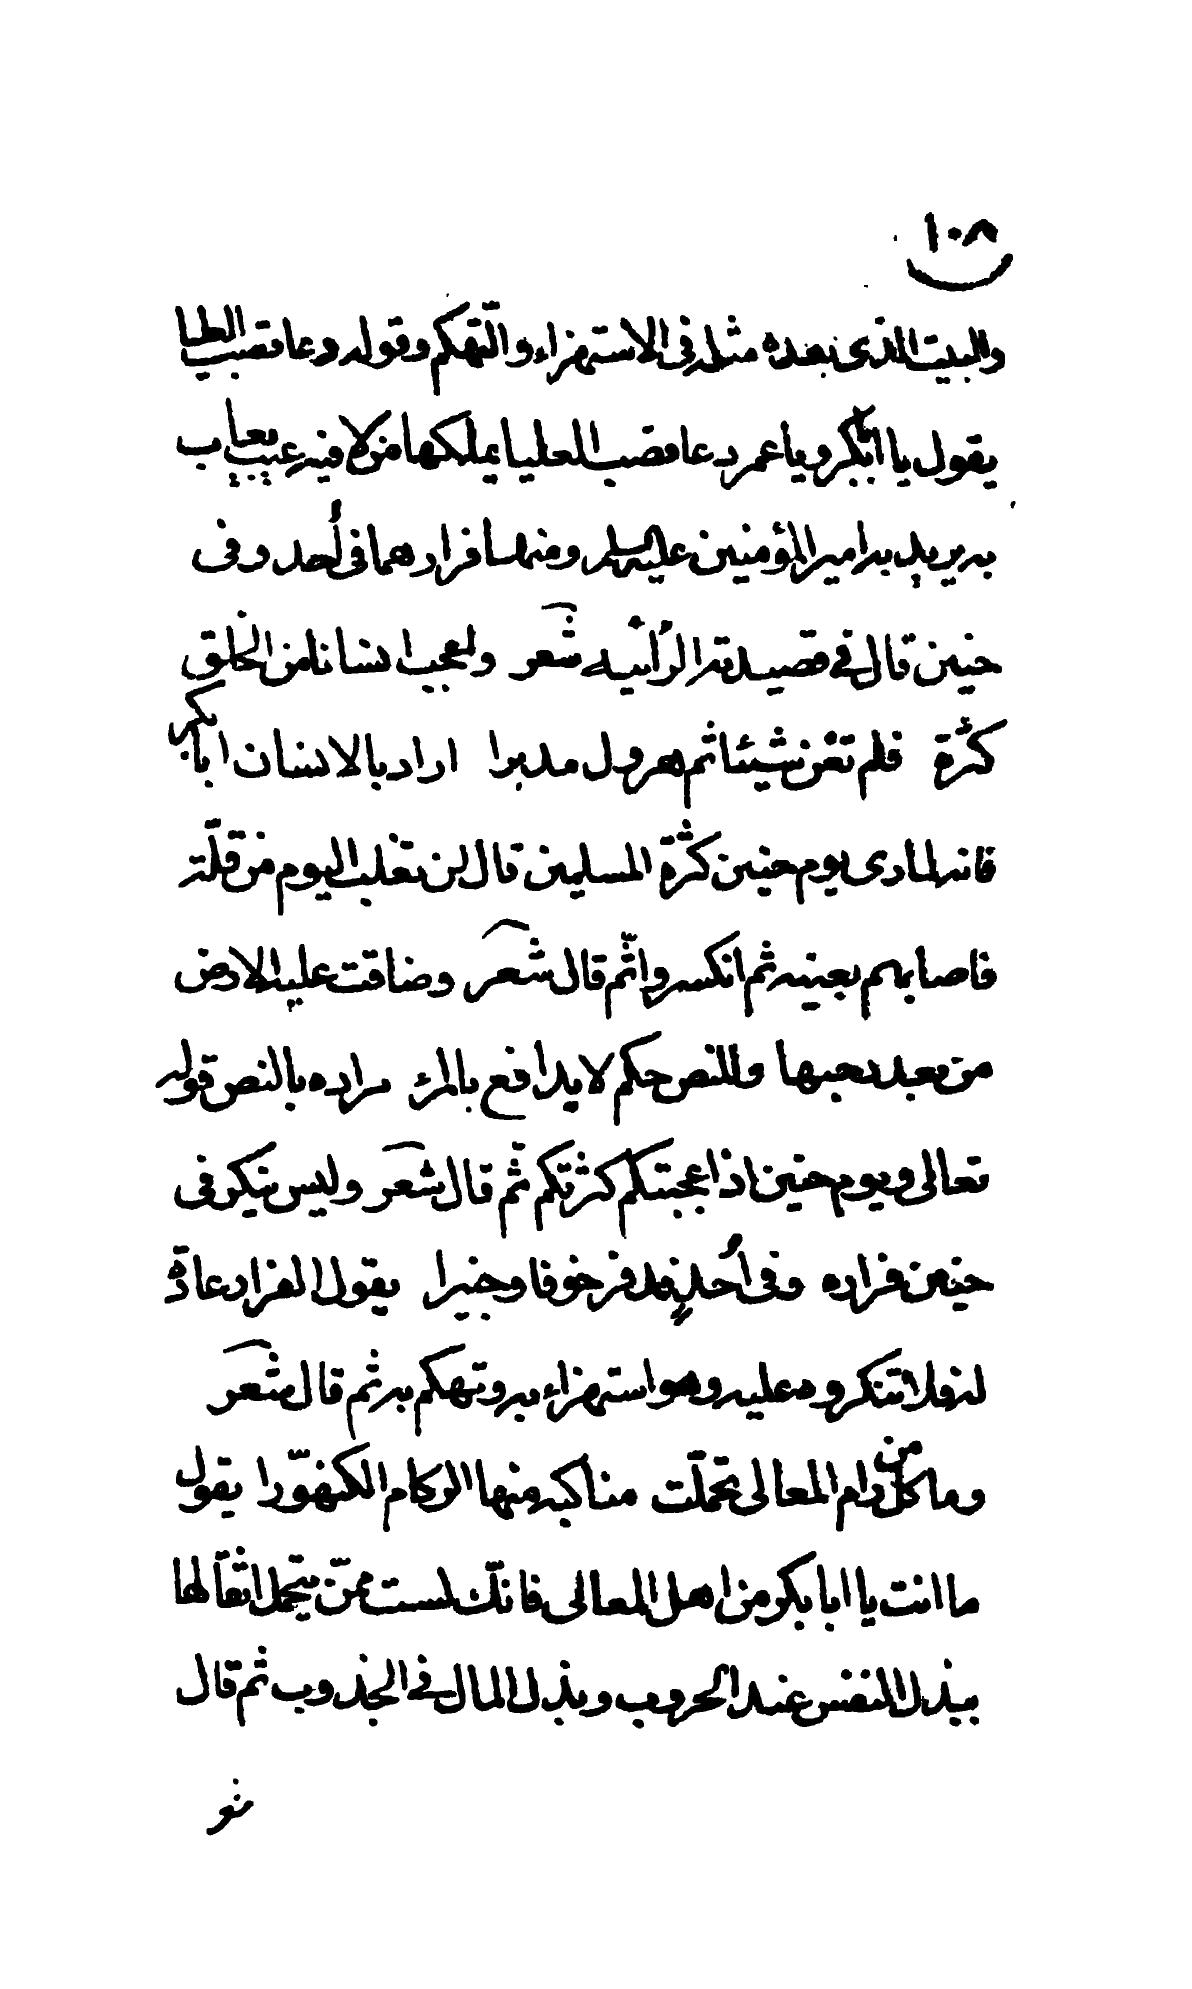 ١٠٨
والبيت الذى بعده مثله فى الاستهزاء والتهكم وقوله دعا قصب العليا
يقول يا ابابكر ويا عمر دعا قصب العليا يملكها من لا فيه عيب يعاب
به يريد به امير المؤمنين عليه السلم ومنها فرارهما فى أحد وفى
حنين قال فى قصيدته الرأئيه شعر واعجب انسانا من الخلق
كثرة فلم تغن شيئا ثم هرول مدبرا اراد بالانسان ابا بكر
فانه لما رى يوم حنين كثرة المسلمين قال لن نغلب اليوم من قلّة
فاصابهم بعينه ثم انكسروا ثم قال شعر وضاقت عليه الارض
من بعد رحبها وللنص حكم لا يدافع بالمرئ مراده بالنص قوله
تعالى ويوم حنين اذ اعجبتكم كثرتكم ثم قال شعر وليس بنكر فى
حنين فراره وفى أحدٍ قد فر خوفا وخيبرا يقول الفرار عادة
له فلا تنكروه عليه وهو استهزاء به وتهكم به ثم قال شعر
وما كل من رام المعالى تحملت مناكبه منها الركام الكنهورا يقول
ما انت يا ابا بكر من اهل المعالى فانّك لست ممّن يتحمل اثقالها
ببذل النفس عند الحروب وبذل المال فى الجذوب ثم قال